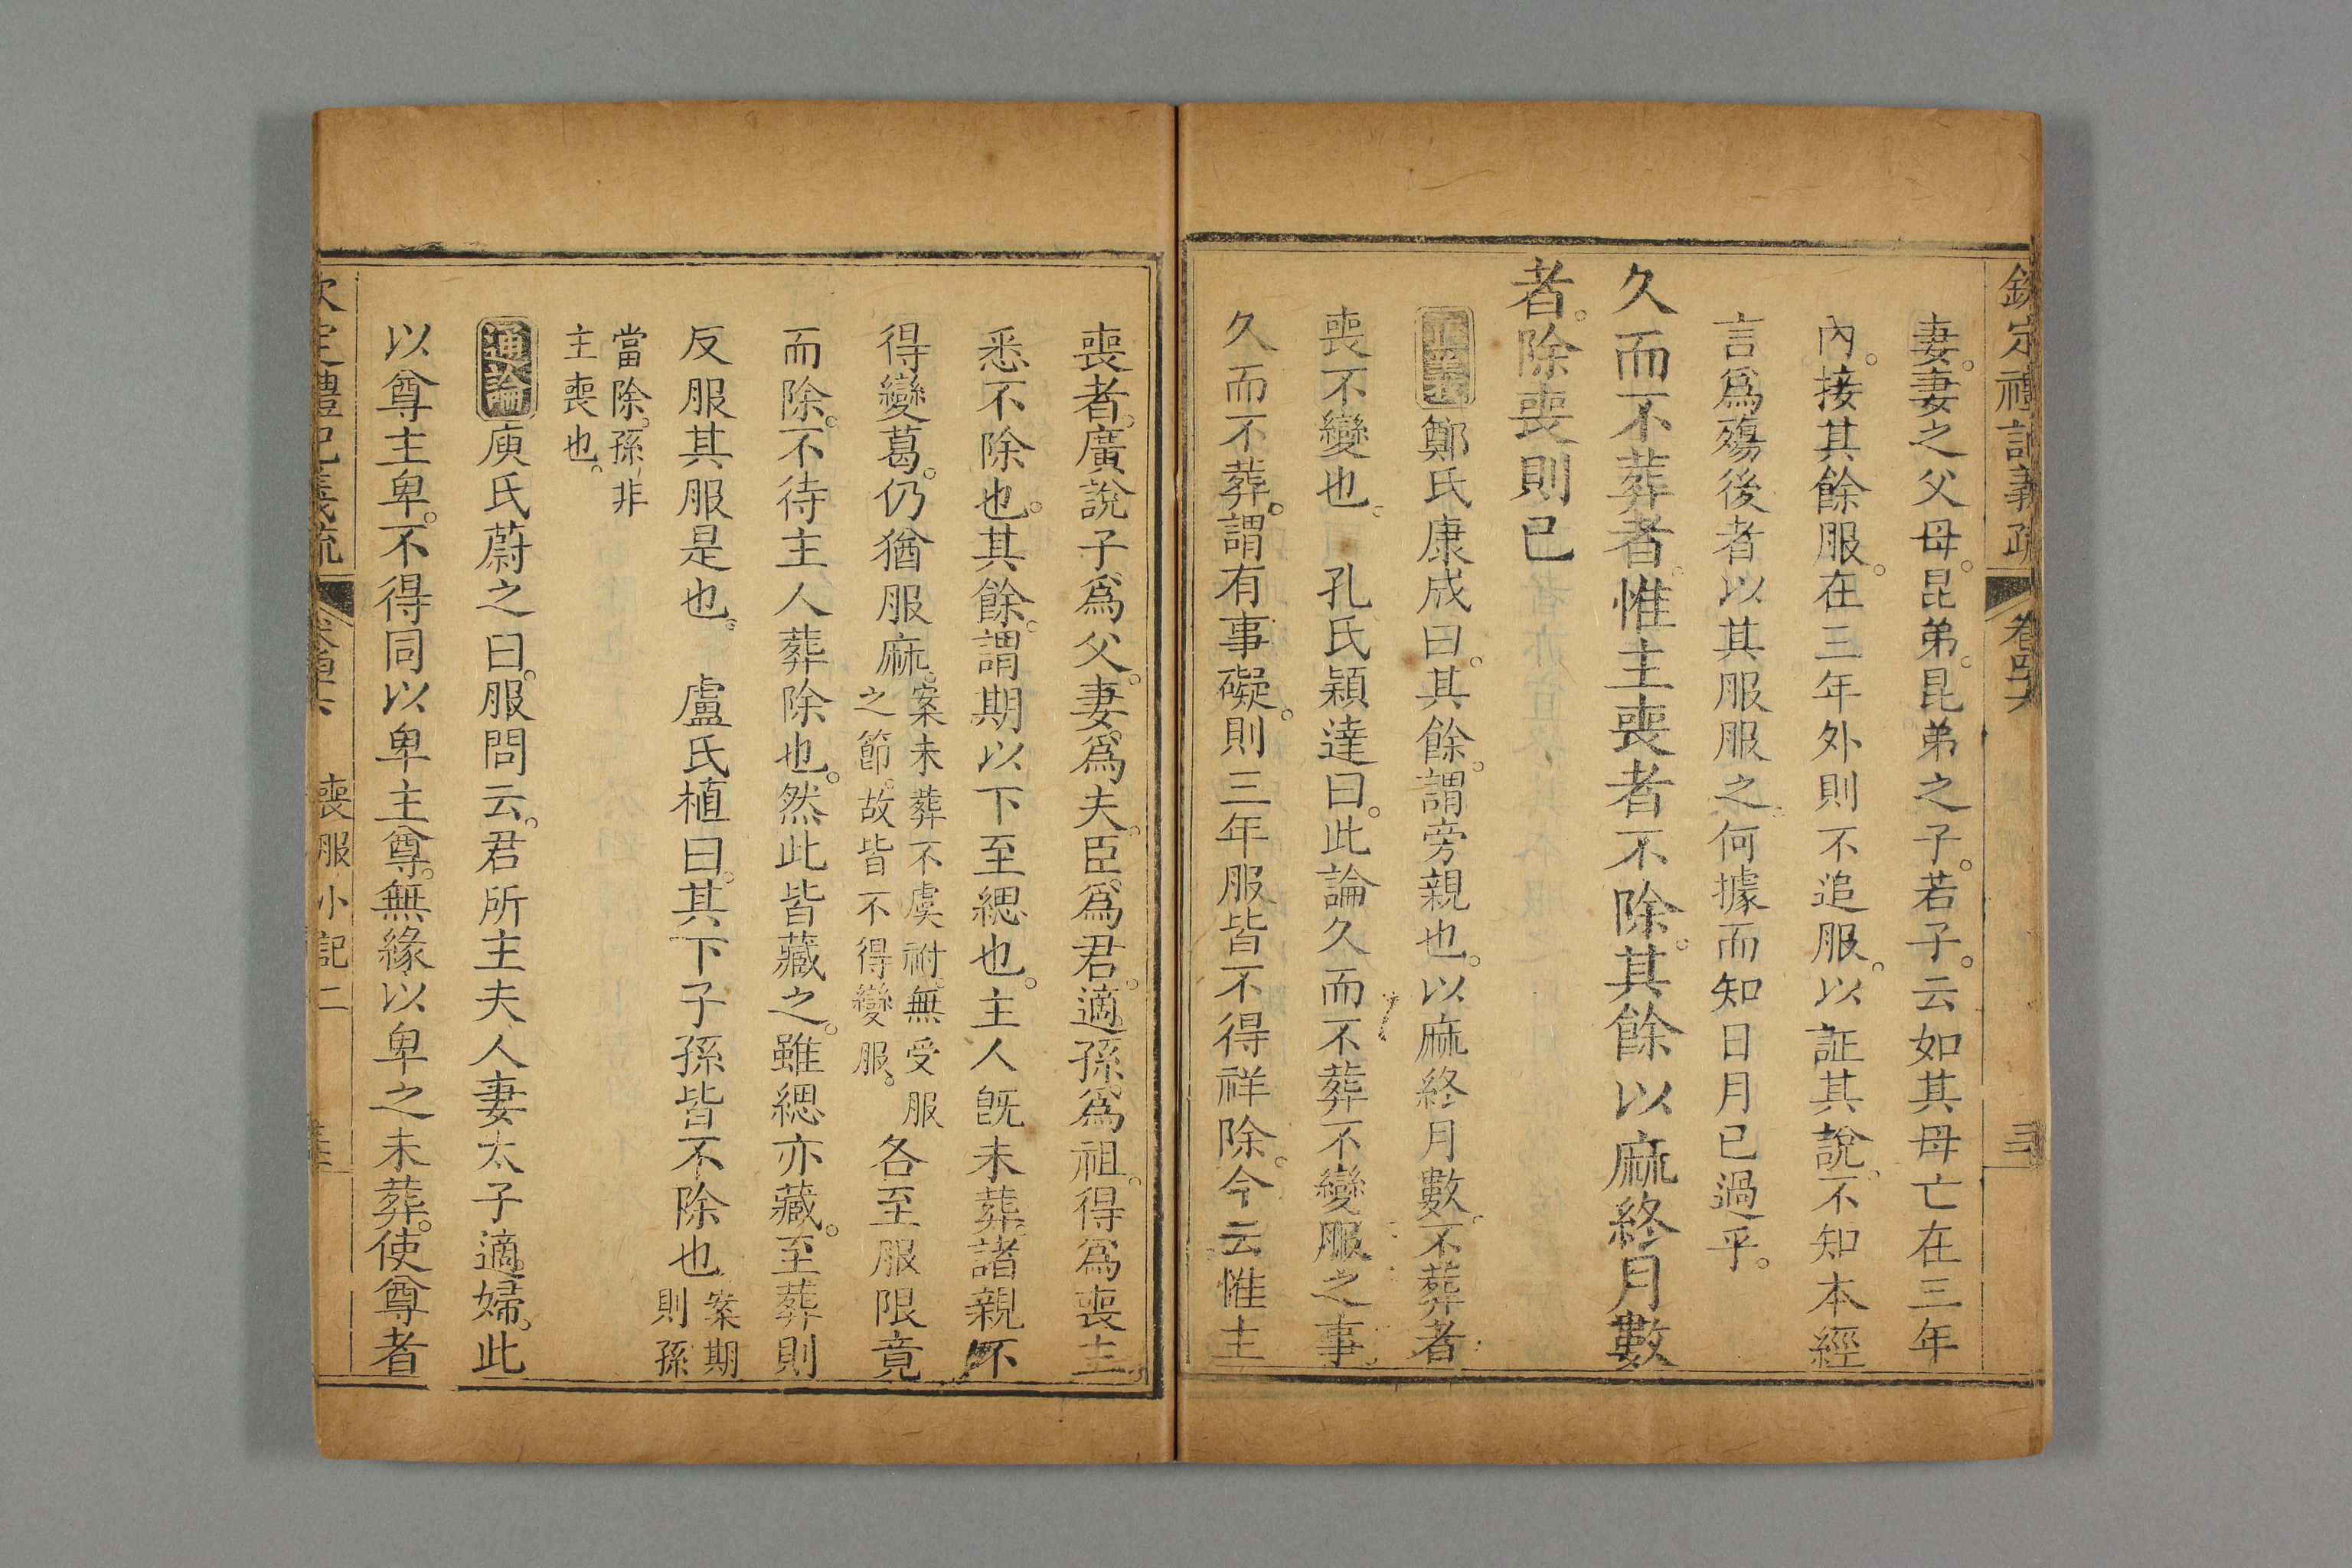 欽定禮記義疏 卷四十六 三
妻。妻之父母。昆弟。昆弟之子。若子。云如其母亡在三年
內。接其餘服。在三年外則不追服。以証其說。不知本經
言爲殤後者以其服服之。何據而知日月已過乎。
久而不葬者。惟主喪者不除。其餘以麻終月數
者。除喪則已
正義 鄭氏康成曰。其餘。謂旁親也。以麻終月數。不葬者
喪不變也。 孔氏穎達曰。此論久而不葬不變服之事。
久而不葬。謂有事礙。則三年服皆不得祥除。今云惟主
喪者。廣說子爲父。妻爲夫。臣爲君。適孫爲祖。得爲喪主。
悉不除也。其餘。謂期以下至緦也。主人旣未葬。諸親不
得變葛。仍猶服麻。案未葬不虞祔。無受服之節。故皆不得變服。各至服限竟
而除。不待主人葬除也。然此皆藏之。雖緦亦藏。至葬則
反服其服是也。 盧氏植曰。其下子孫皆不除也案期則孫
當除。孫非主喪也。
通論 庾氏蔚之曰。服問云。君所主夫人妻太子適婦。此
以尊主卑。不得同以卑主尊。無緣以卑之未葬。使尊者
欽定禮記義疏 卷四十六 喪服小記二